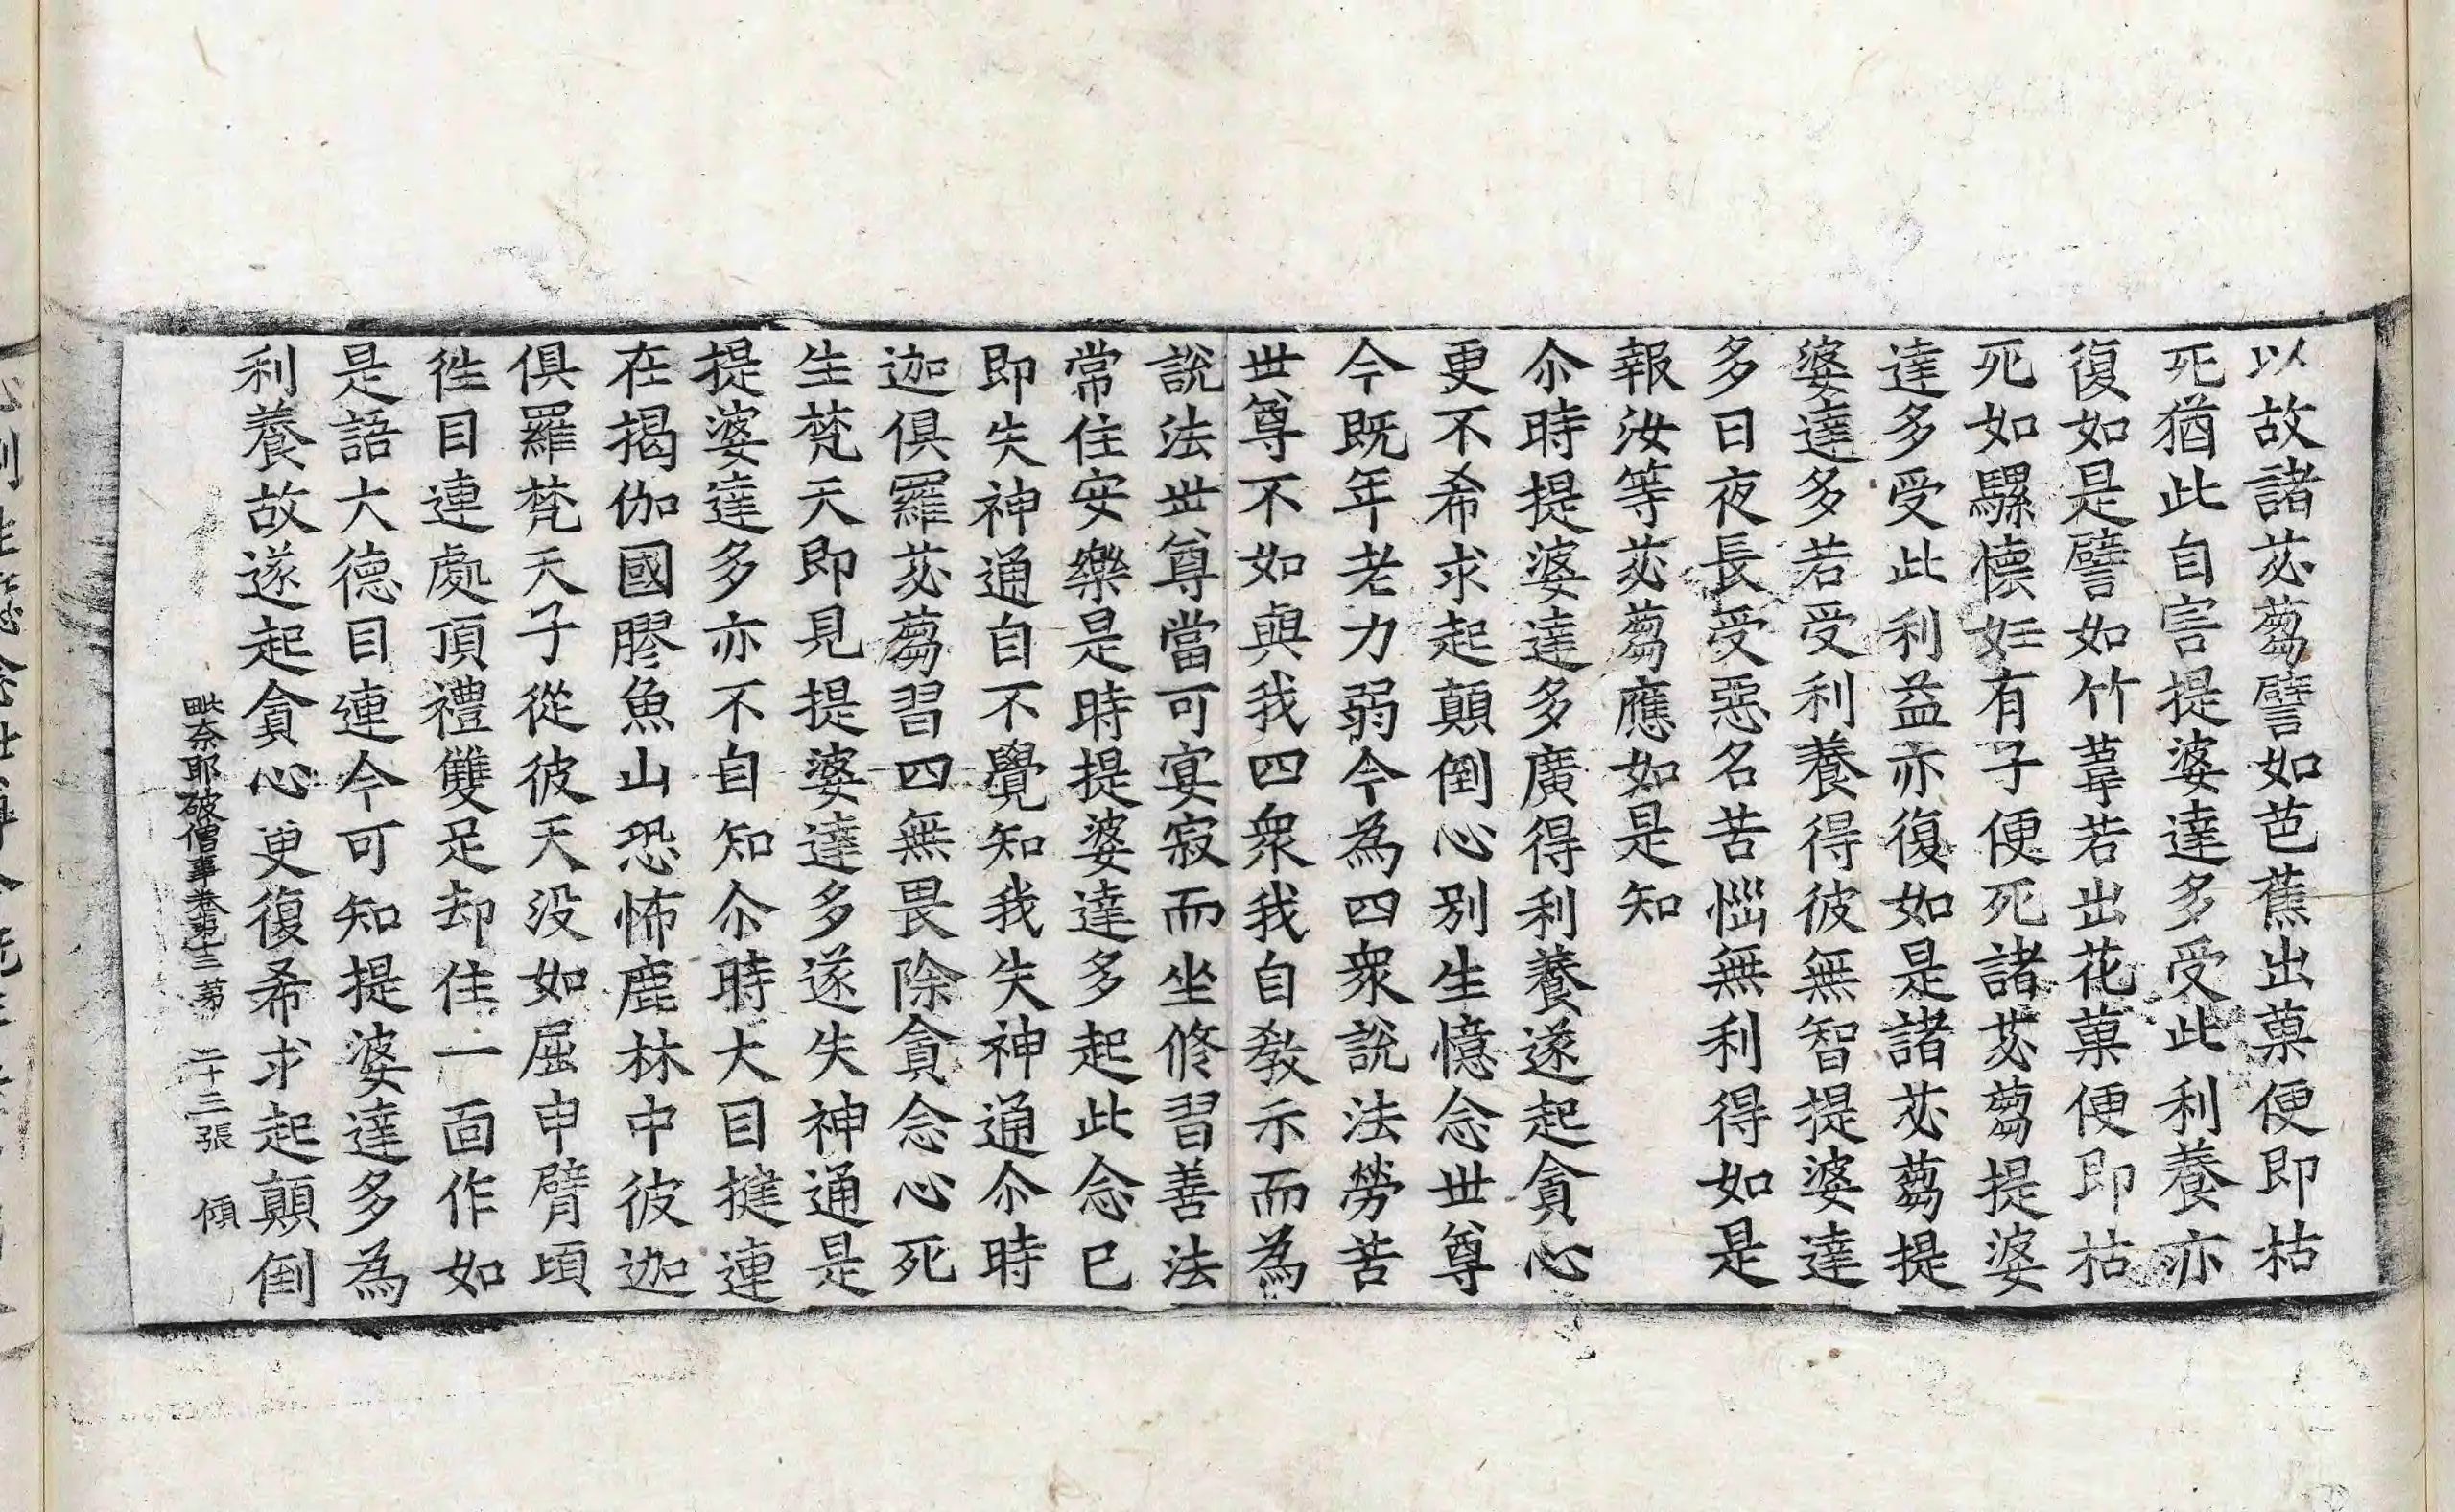 以故諸苾蒭譬如芭蕉出菓便即枯
死猶此自害提婆達多受此利養亦
復如是譬如竹葦若出花菓便即枯
死如騾懷妊有子便死諸苾蒭提婆
達多受此利益亦復如是諸苾蒭提
婆達多若受利養得彼無智提婆達
多日夜長受惡名苦惱無利得如是
報汝等苾蒭應如是知
尒時提婆達多廣得利養遂起貪心
更不希求起顛倒心別生憶念世尊
今既年老力弱今為四衆說法勞苦
世尊不如與我四衆我自教示而為
說法世尊當可宴寂而坐修習善法
常住安樂是時提婆達多起此念已
即失神通自不覺知我失神通尒時
迦俱羅苾蒭習四無畏除貪念心死
生梵天即見提婆達多遂失神通是
提婆達多亦不自知尒時大目揵連
在揭伽國膠魚山恐怖鹿林中彼迦
俱羅梵天子從彼天没如屈申臂頃
徃目連處頂禮雙足却住一面作如
是語大德目連今可知提婆達多為
利養故遂起貪心更復希求起顛倒
毗奈耶破僧事卷第十三第 二十二張 傾